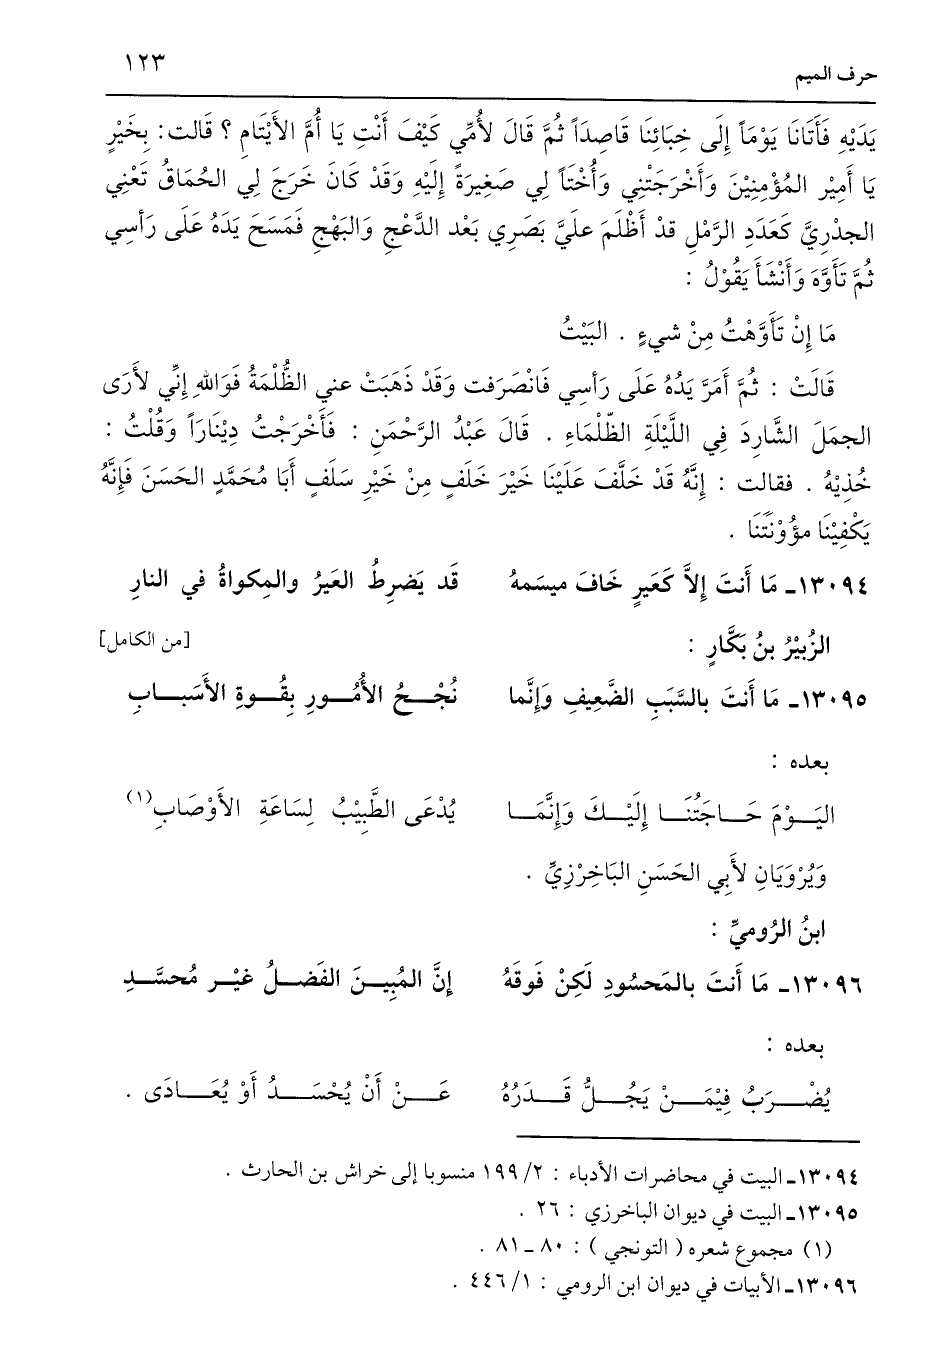 حرف الميم ١٢٣
يَدَيْهِ فَأَتَانَا يَوْمَاً إِلَى خِبَائِنَا قَاصِدَاً ثُمَّ قَالَ لأُمِّي كَيْفَ أَنْتِ يَا أُمَّ الأَيْتَامِ ؟ قَالت: بِخَيْرٍ
يَا أَمِيْر المُؤْمِنِيْنَ وَأَخْرَجَتْنِي وَأُخْتَاً لِي صَغِيرَةً إِلَيْهِ وَقَدْ كَانَ خَرَجَ لِي الحُمَاقُ تَعْنِي
الجذْرِيَّ كَعَدَدِ الرَّمْلِ قدْ أَظْلَمَ عليَّ بَصَرِي بَعْد الدَّعْجِ وَالبَهْجِ فَمَسَحَ يَدَهُ عَلَى رَأسِي
ثُمَّ تَأَوَّهَ وَأَنْشَأَ يَقُوْلُ :
مَا إِنْ تَأَوَّهْتُ مِنْ شيءٍ . البَيْتُ
قَالَتْ : ثُمَّ أَمَرَّ يَدُهُ عَلَى رَأسِي فَانْصَرَفت وَقَدْ ذَهَبَتْ عني الظُّلْمَةُ فَوَاللهِ إِنِّي لأَرَى
الجمَلَ الشَّارِدَ فِي اللَّيْلَةِ الظّلْمَاءِ . قَالَ عَبْدُ الرَّحْمَنِ : فَأَخْرَجْتُ دِيْنَارَاً وَقُلْتُ :
خُذِيْهُ . فقالت : إِنَّهُ قَدْ خَلَّفَ عَلَيْنَا خَيْرَ خَلَفٍ مِنْ خَيْرِ سَلَفٍ أَبَا مُحَمَّدٍ الحَسَنَ فَإِنَّهُ
يَكْفِيْنَا مؤُوْنَتَنَا .
١٣٠٩٤ـ مَا أَنتَ إِلاَّ كَعَيرٍ خَافَ ميسَمهُ قَد يَضرِطُ العَيرُ والمِكواةُ في النارِ
الزُبَيْرُ بنُ بَكَّارٍ : [من الكامل]
١٣٠٩٥ـ مَا أَنتَ بالسَّبَبِ الضَّعِيفِ وَإِنَّما نُجْـحُ الأُمُـورِ بِقُـوةِ الأَسَبـابِ
بعده :
اليَـوْمَ حَـاجَتُنَـا إِلَيْـكَ وَإِنَّمَـا يُدْعَى الطَّبِيْبُ لِسَاعَةِ الأَوْصَابِ(١)
وَيُرْوَيَانِ لأَبِي الحَسَنِ البَاخِرْزِيِّ .
ابنُ الرُوميِّ :
١٣٠٩٦ـ مَا أَنتَ بالمَحسُودِ لَكِنْ فَوقَهُ إِنَّ المُبِيـنَ الفَضـلُ غيْـر مُحسَّـدِ
بعده :
يُضْـرَبُ فِيْمَـنْ يَجُـلُّ قَـدَرُهُ عَـنْ أَنْ يُحْسَـدُ أَوْ يُعَـادَى .
١٣٠٩٤ـ البيت في محاضرات الأدباء : ٢/ ١٩٩ منسوبا إلى خراش بن الحارث .
١٣٠٩٥ـ البيت في ديوان الباخرزي : ٢٦ .
(١) مجموع شعره ( التونجي ) : ٨٠ ـ ٨١ .
١٣٠٩٦ـ الأبيات في ديوان ابن الرومي : ١/ ٤٤٦ .